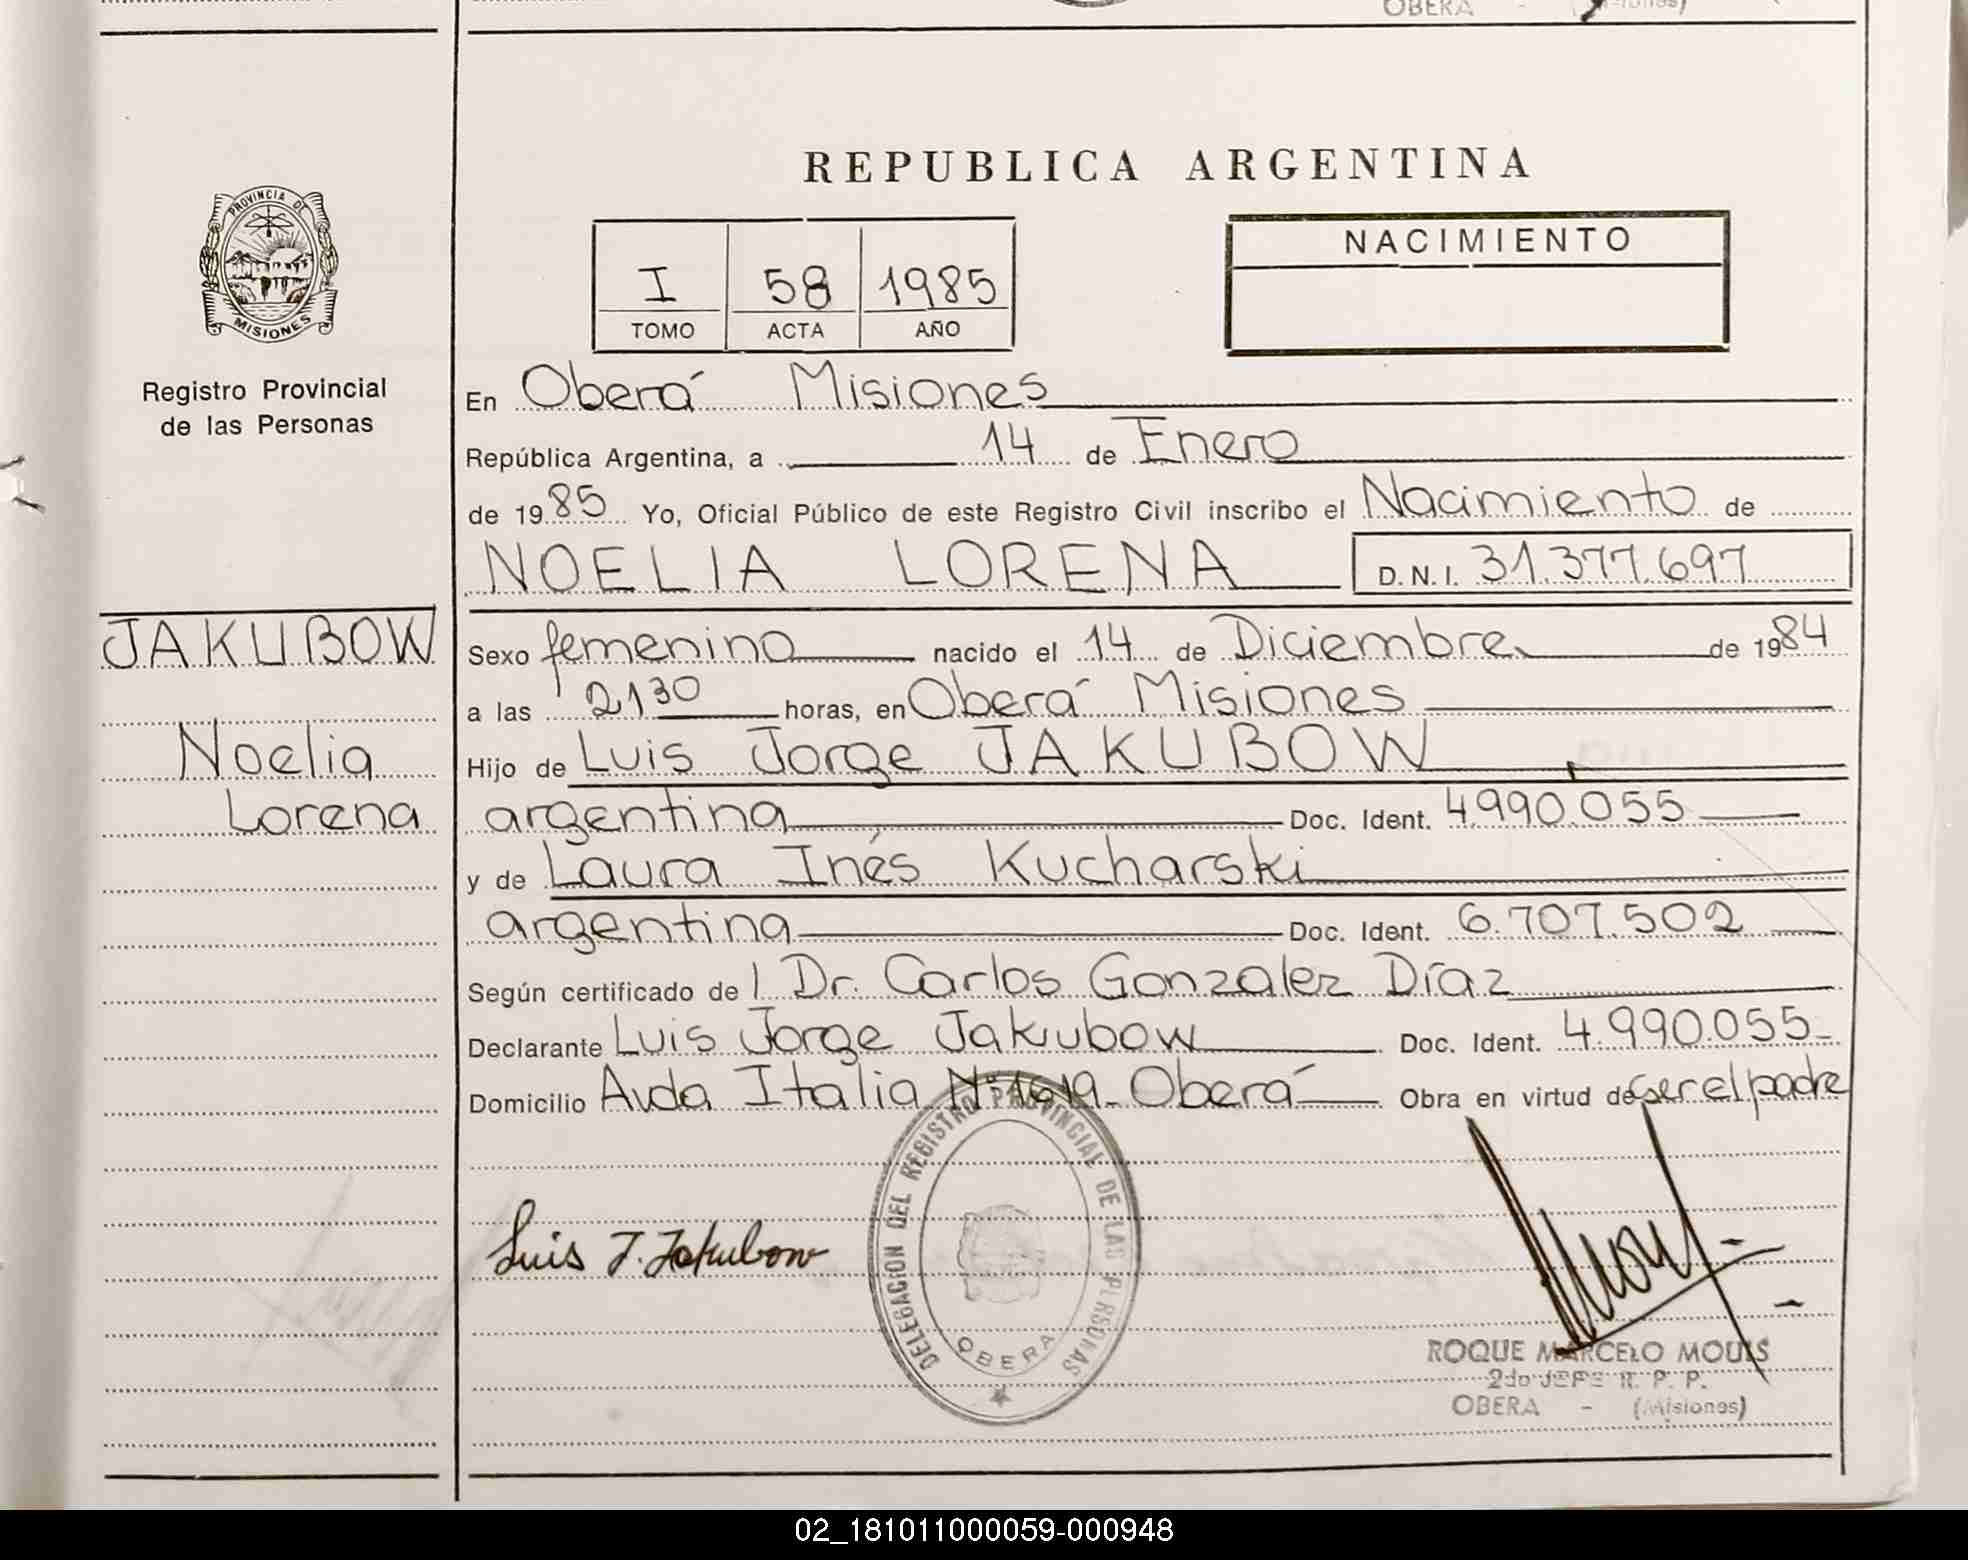 OBERA - (Misiones)
REPUBLICA ARGENTINA
PROVINCIA DE
MISIONES
Registro Provincial
de las Personas
I 58 1985
TOMO ACTA AÑO
NACIMIENTO
En Oberá Misiones
República Argentina, a 14 de Enero
de 1985 Yo, Oficial Público de este Registro Civil inscribo el Nacimiento de
NOELIA LORENA D.N.I. 31.377.697
JAKUBOW
Noelia
Lorena
Sexo femenino nacido el 14 de Diciembre de 1984
a las 2130 horas, en Oberá Misiones
Hijo de Luis Jorge JAKUBOW
argentina Doc. Ident. 4.990.055
y de Laura Inés Kucharski
argentina Doc. Ident. 6.707.502
Según certificado de l Dr. Carlos Gonzalez Díaz
Declarante Luis Jorge Jakubow Doc. Ident. 4.990.055
Domicilio Avda Italia Nº 1619 - Oberá Obra en virtud de ser el padre
Luis J. Jakubow
DELEGACION DEL REGISTRO PROVINCIAL DE LAS PERSONAS
OBERA
ROQUE MARCELO MOUIS
2do JEFE R. P. P.
OBERA - (Misiones)
02_181011000059-000948